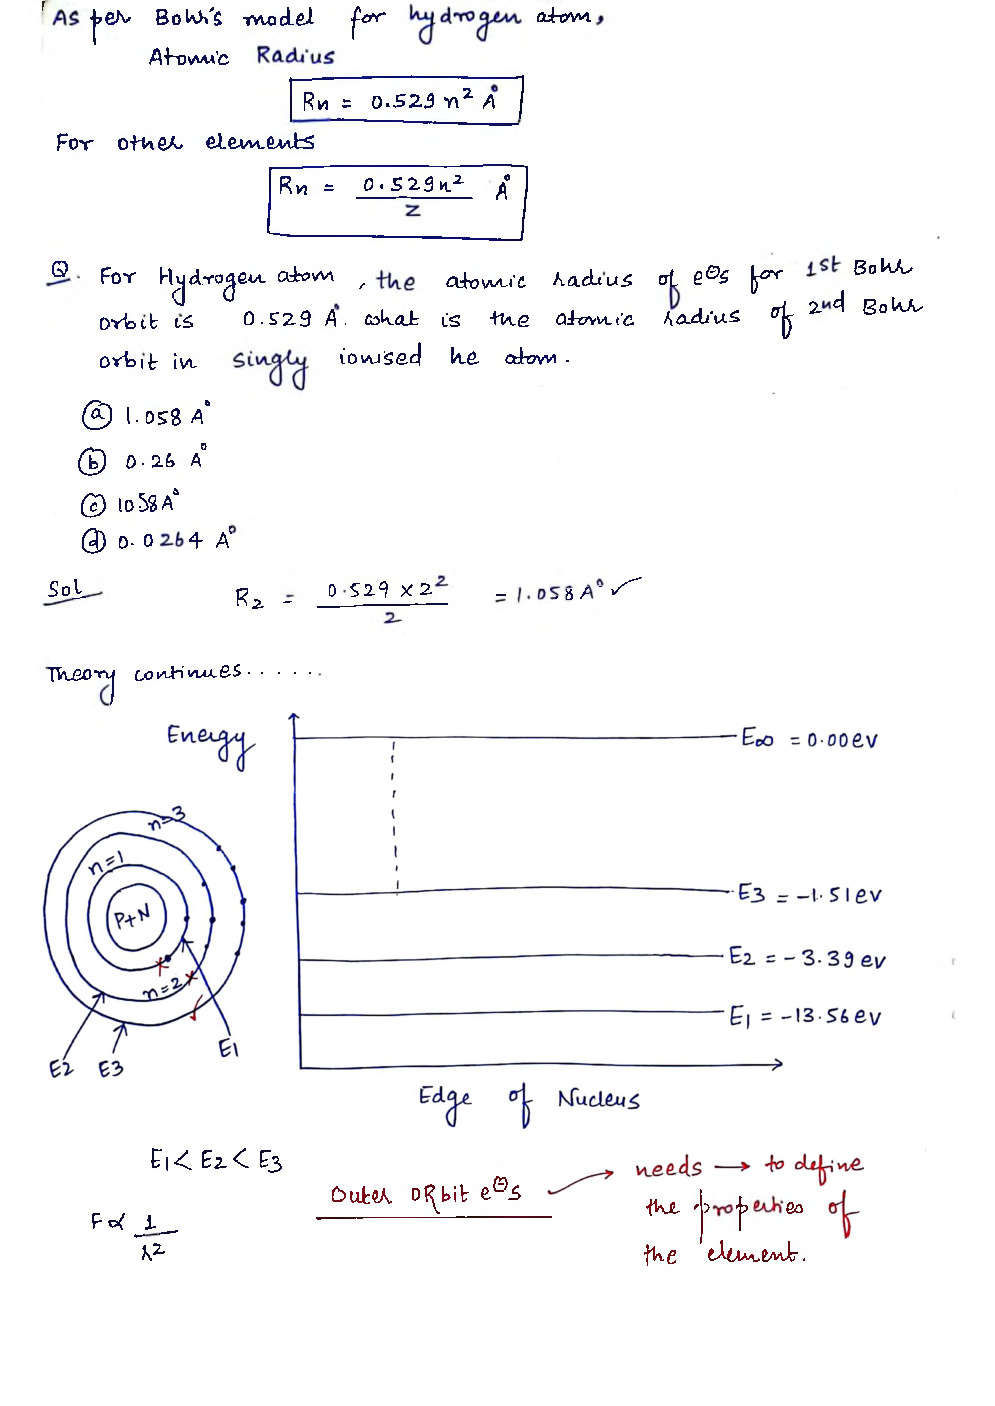 As per Bohr's model for hydrogen atom,
Atomic Radius
Rn = 0.529 n² Å
For other elements
Rn = 0.529n²/Z Å
Q. For Hydrogen atom, the atomic radius of e⊖s for 1st Bohr
orbit is 0.529 Å. what is the atomic radius of 2nd Bohr
orbit in singly ionised he atom.
ⓐ 1.058 A°
ⓑ 0.26 A°
ⓒ 1058 A°
ⓓ 0.0264 A°
Sol
R₂ = 0.529 × 2²/2 = 1.058 A° ✓
Theory continues......
Energy
E∞ = 0.00ev
n=3
n=1
P+N
n=2
E3 = -1.51ev
E2 = -3.39 ev
E1 = -13.56ev
E2 E3 E1
Edge of Nucleus
E1 < E2 < E3
Outer ORbit e⊖s → needs → to define
the properties of
the element.
F ∝ 1/r²